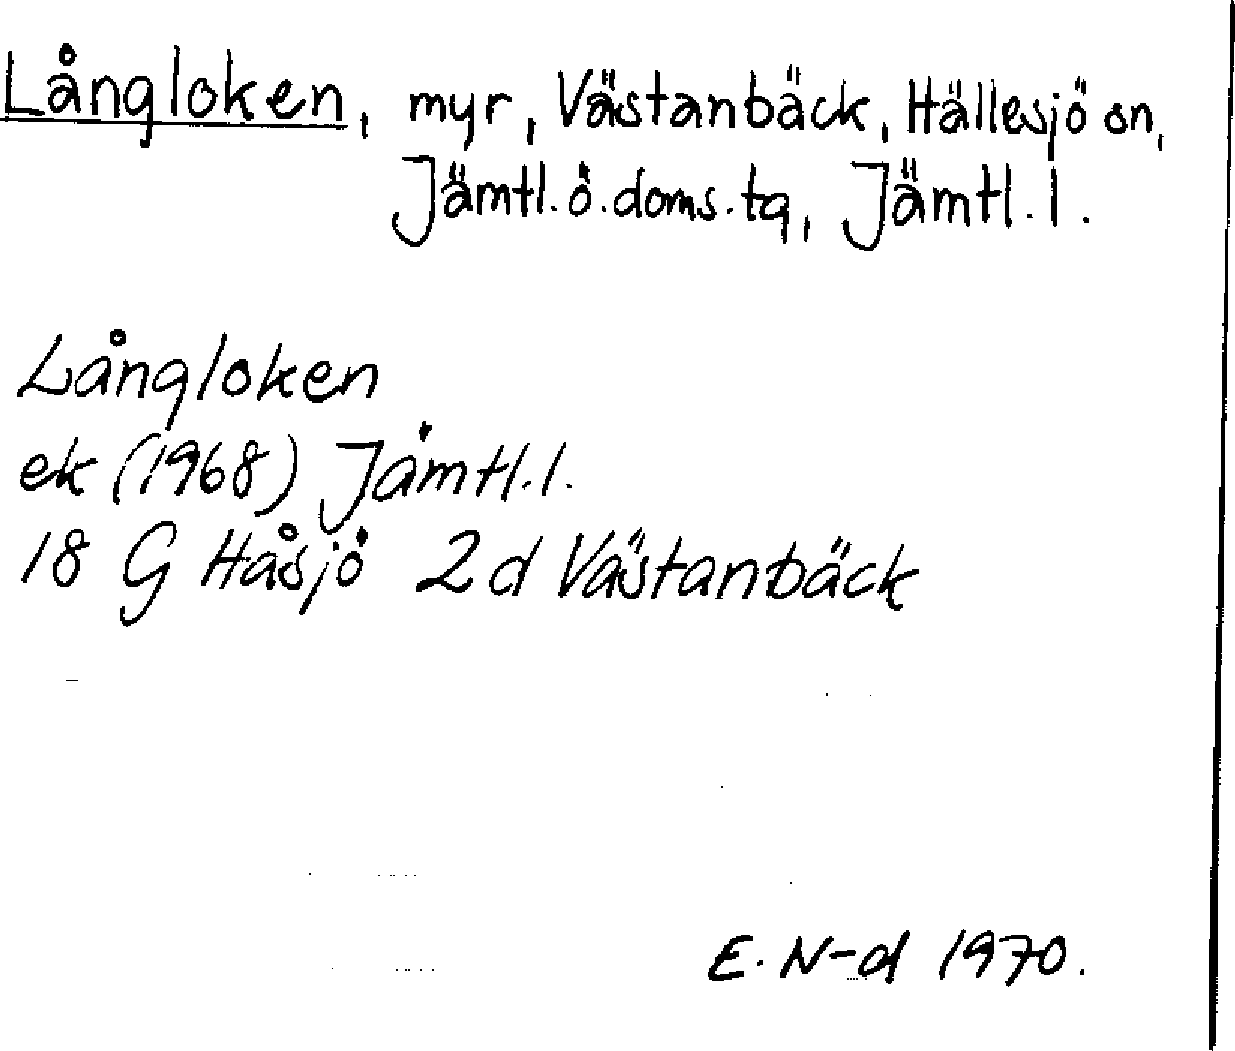 Långloken, myr, Västanbäck, Hällesjö sn,
Jämtl. ö. doms. tg, Jämtl. l.
Långloken
ek (1968) Jämtl. l.
18 G Håsjö 2d Västanbäck
E. N-d 1970.